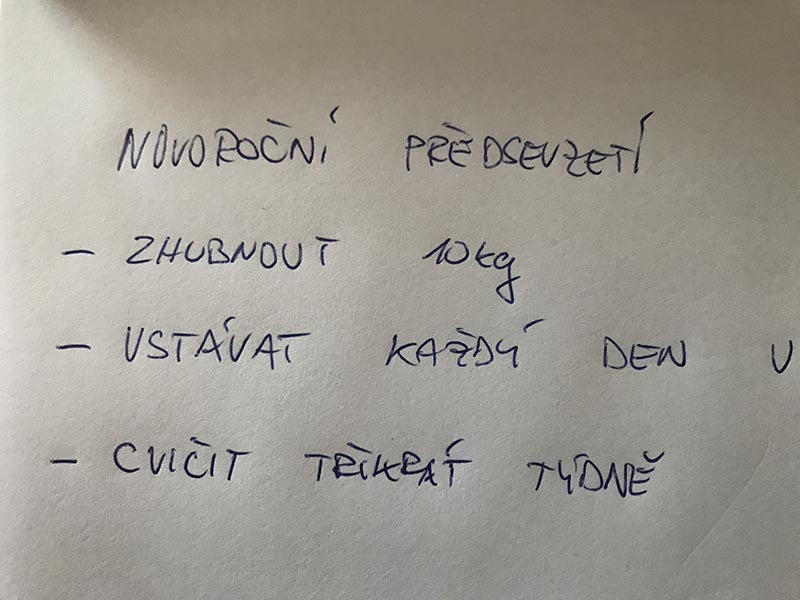 NOVOROČNÍ PŘEDSEVZETÍ
- ZHUBNOUT 10kg
- VSTÁVAT KAŽDÝ DEN V
- CVIČIT TŘIKRÁT TÝDNĚ